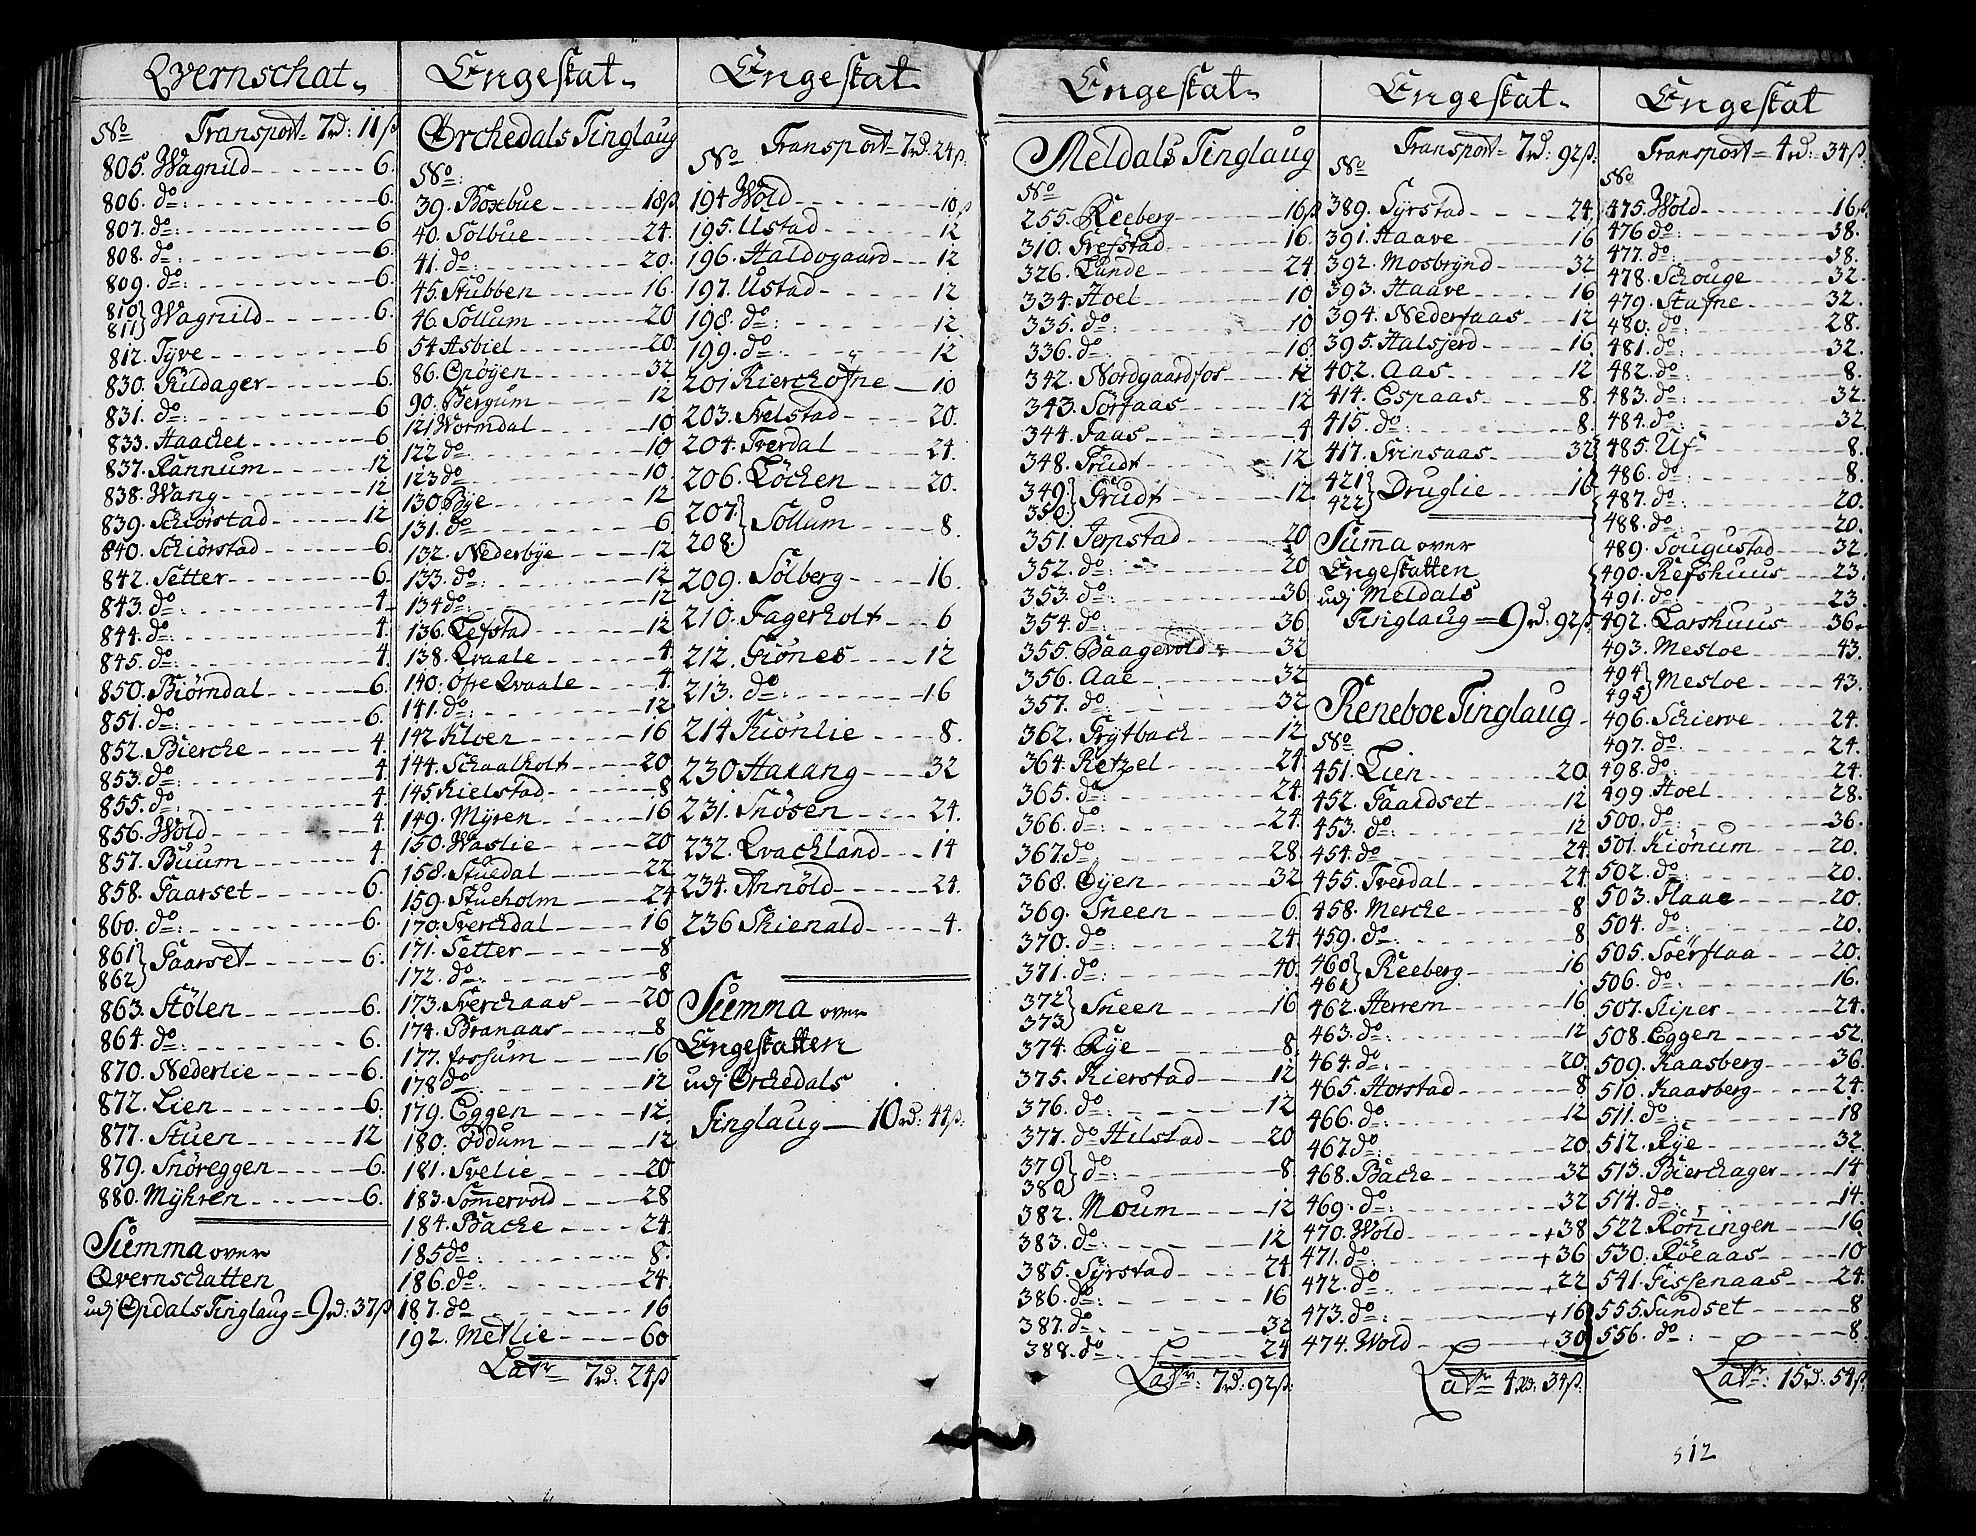 Qvernschat
No Transport 7 rd: 11 ß
805. Wagnild 6.
806. do: 6.
807. do: 6
808. do: 6.
809. do: 6.
810 811 } Wagnild 6.
812. Tyve 6
830. Guldager 6.
831. do 6
833. Haacher 6
837. Rannum 12
838. Wang 12
839. Schiørstad 12
840. Schiørstad 6.
842. Setter 6
843. do: 4.
844. do: 4.
845. do: 4.
850. Biørndal 6.
851. do: 6.
852. Bierche 4.
853. do: 4
855. do: 4
856. Wold 4.
857. Buum 4.
858. Gaarset 6
860. do: 6.
861 862 } Gaarset 6.
863. Stølen 6.
864. do: 6.
870. Nederlie 6.
872. Lien 6.
877. Stuen 12
879. Snøreggen 6.
880. Myhren 6.
Summa over
Qvernschatten
udj Opdals Tinglaug = 9 rd: 37 ß
Engeskat
Orchedals Tinglaug
No:
39. Boxbue 18 ß
40. Solbue 24.
41. do: 20.
45. Stubben 16.
46. Sollum 20
54 Asbiel 20
86. Onøyen 32
90. Bergum 12
121 Wormdal 10
122 do: 10
123 do: 10
130 Bye 12
131. do: 6
132. Nederbye 12
133. do: 12
134 do: 12
136. Lefstad 12
138. Qvaale 4
140. Øfre Qvaale 4
141. do: 12
142 Kloen 16
144. Schaalholt 20
145 Kielstad 8
149. Myren 16
150. Waslie 20
158. Stuedal 22
159. Stueholm 24
170. Sverchdal 16
171. Setter 8
172. do: 8
173. Sverchaas 20
174. Branaas 8
177. Forsum 16
178 do: 12
179. Eggen 12
180. Oddum 12
181. Svelie 20
183. Sommervold 28
184. Backe 24.
185 do: 8.
186. do: 24
187. do: 16
192. Metlie 60
Latr 7 rd: 24 ß
Engeskat
No Transport 7 rd: 24 ß
194 Wold 10 ß
195. Ustad 12
196. Haldogaard 12
197. Ustad 12
198. do: 12
199. do: 12
201 Kierchofne 10
203. Svelstad 20.
204. Sverdal 24.
206. Løchen 20.
207. 208. } Sollum 8.
209. Solberg 16.
210. Fagerholt 6
212. Giønes 12
213. do: 16
214 Kiønlie 8.
230 Harang 32
231. Snøsen 24.
232. Qvachland 14
234. Arnøld 24.
236 Skienald 4.
Summa over
Engeskatten
udj Orchedals
Tinglaug 10 rd: 44 ß
Engeskat
Meldals Tinglaug
No
255. Reeberg 16 ß
310. Grefstad 16.
326. Lunde 24
334. Hoel 10
335. do: 10
336. do: 10
342. Nordgaardfos 12
343. Sørfaas 12
344. Faas 4
348. Grudt 12
349 350 } Grudt 12
351. Jerpstad 20
352. do: 20
353. do: 36
354. do: 36
355. Baagevold 32
356. Aae 32
357. do: 32
362. Grytbach 12
364. Retzel 24
365. do: 24.
366. do: 24.
367. do 28
368. Øyen 32
369. Sneen 6
370. do: 24
371. do: 40
372 373 } Sneen 16
374. Rye 8
375. Kierstad 12
376. do: 12
377. do Hilstad 20
379 380 } do: 8
382. Moum 12
383. do: 12
385. Syrstad 24
386. do: 16
387. do: 32
388. do: 24
Latr: 7 rd: 92 ß
Engeskat
No Transport 7 rd: 92 ß
389. Syrstad 24
391. Haave 16
392. Mosbrynd 32
393. Haave 16
394. Nederfaas 12
395. Halsjerd 16
402. Aas 12
414. Espaas 8
415. do: 8.
417. Svinsaas 32
421 422 } Druglie 16
Suma over
Engeskatten
udj Meldals
Tinglaug 9 rd: 92 ß
Reneboe Tinglaug
No
451. Lien 20
452. Gaardset 12
453. do: 12
454. do: 24
455. Sverdal 24
458. Merche 8
459. do: 8
460 461 } Reeberg 16
462. Herrem 16
463. do: 12
464. do: 20
465. Horstad 8
466. do: 12
467 do: 20
468. Bache 32
469. do: 32
470. Wold + 38
471. do: + 36
472. do: + 22
473. do: + 16
474. Wold + 30
Latr 4 rd: 34 ß
Engeskat
Transport 4 rd: 34 ß
No
475. Wold 16 ß
476 do: 38.
477. do: 38.
478. Schouge 32.
479. Stafne 32.
480. do: 28.
481. do: 32.
482. do: 8.
483. do: 32.
484. do: 32
485. Uf 8.
486. do: 8.
487. do: 20.
488. do: 20.
489. Sougustad 32.
490. Refshuus 23.
491. do: 23.
492. Larshuus 36.
493. Mesloe 43.
494 495 } Mesloe 43.
496. Schierve 24.
497. do: 24.
498. do: 24.
499 Hoel 28.
500. do: 36.
501. Kiønum 20.
502. do: 20.
503. Flaae 20.
504. do: 20.
505. Soerflaa 20.
506. do: 16.
507. Stiper 24.
508. Eggen 52.
509. Kaasberg 36.
510. Kaasberg 24.
511. do: 18
512. Rye 32.
513. Bierchager 14
514. do: 14.
522. Røningen 16
530. Røeaas 10
541. Gissenaas 24.
555. Sundset 8
556. do: 8.
Latr: 15 rd: 54 ß
512